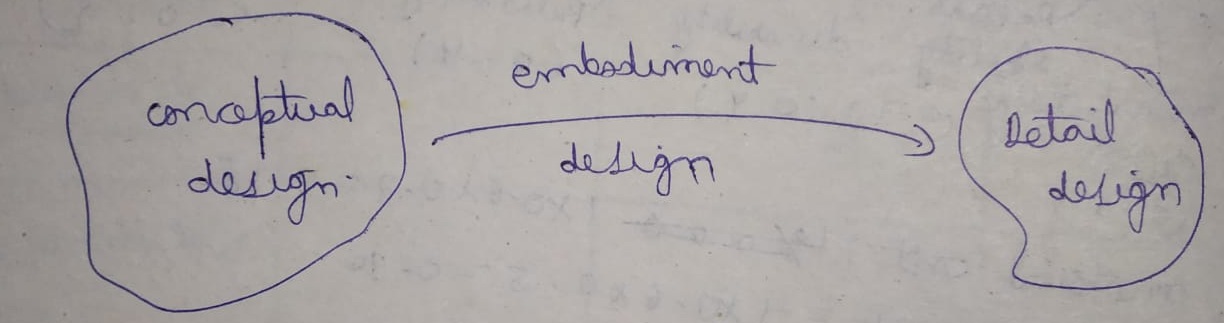 conceptual
design.
embodiment
design
Detail
design